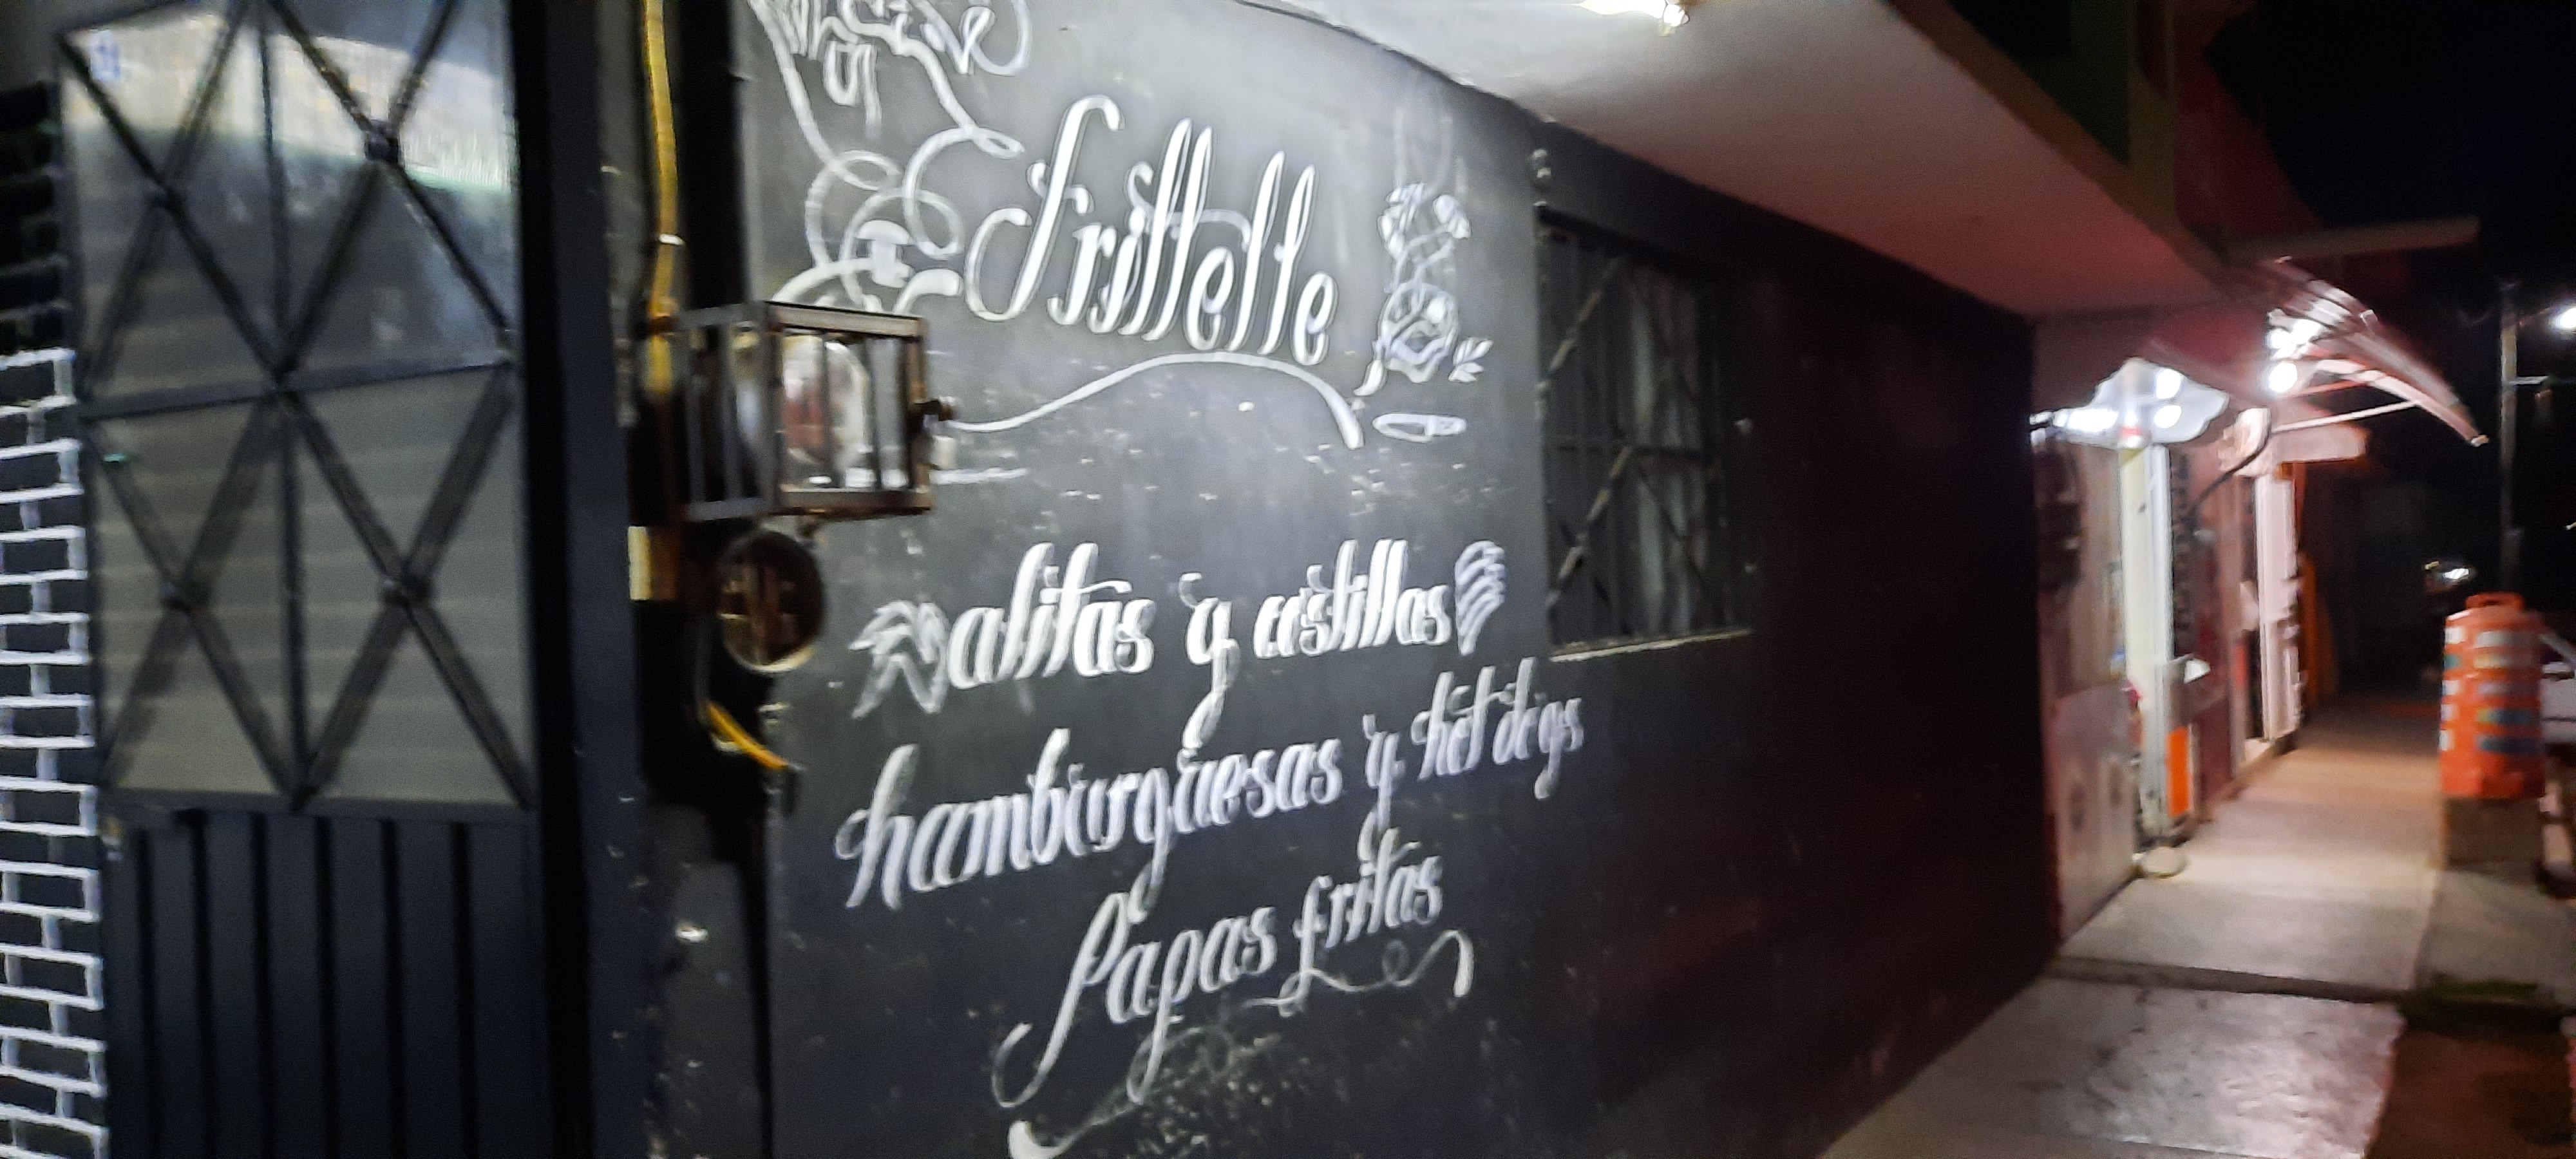 fritelle
alitas y costillas
hamburguesas y hot dogs
Papas fritas